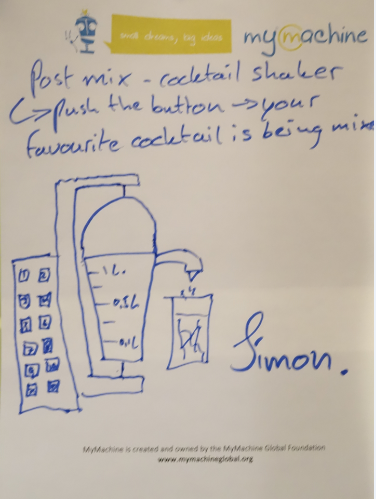 small dreams, big ideas
mymachine
Post mix - cocktail shaker
↳ push the button → your
favourite cocktail is being mixe
1 2
1L.
0,5L
0,1L
Simon.
MyMachine is created and owned by the MyMachine Global Foundation
www.mymachineglobal.org